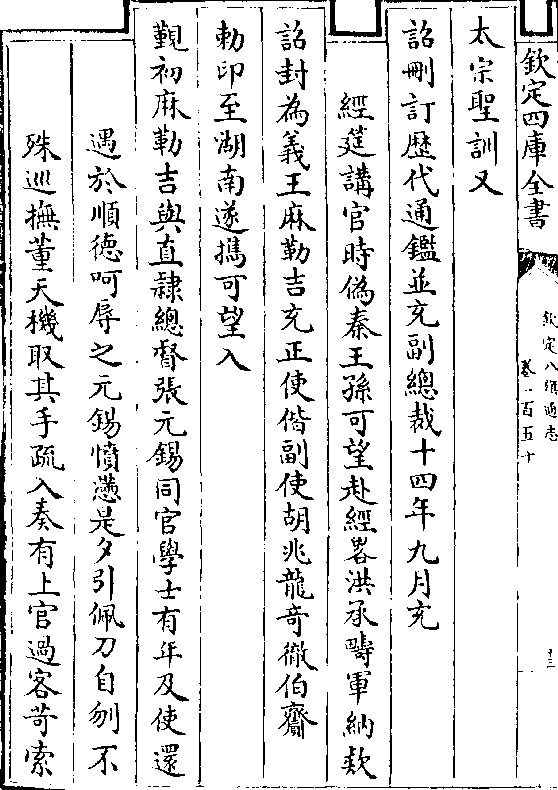 欽定四庫全書
欽定八旗通志
卷一百五十
十三
太宗聖訓又
詔刪訂歷代通鑑並充副總裁十四年九月充
經筵講官時偽秦王孫可望赴經畧洪承疇軍納欵
詔封為義王麻勒吉充正使偕副使胡兆龍竒徹伯齎
勅印至湖南遂擕可望入
覲初麻勒吉與直隷總督張元錫同官學士有年及使還
遇於順德呵辱之元錫憤懣是夕引佩刀自刎不
殊巡撫董天機取其手疏入奏有上官過客苛索